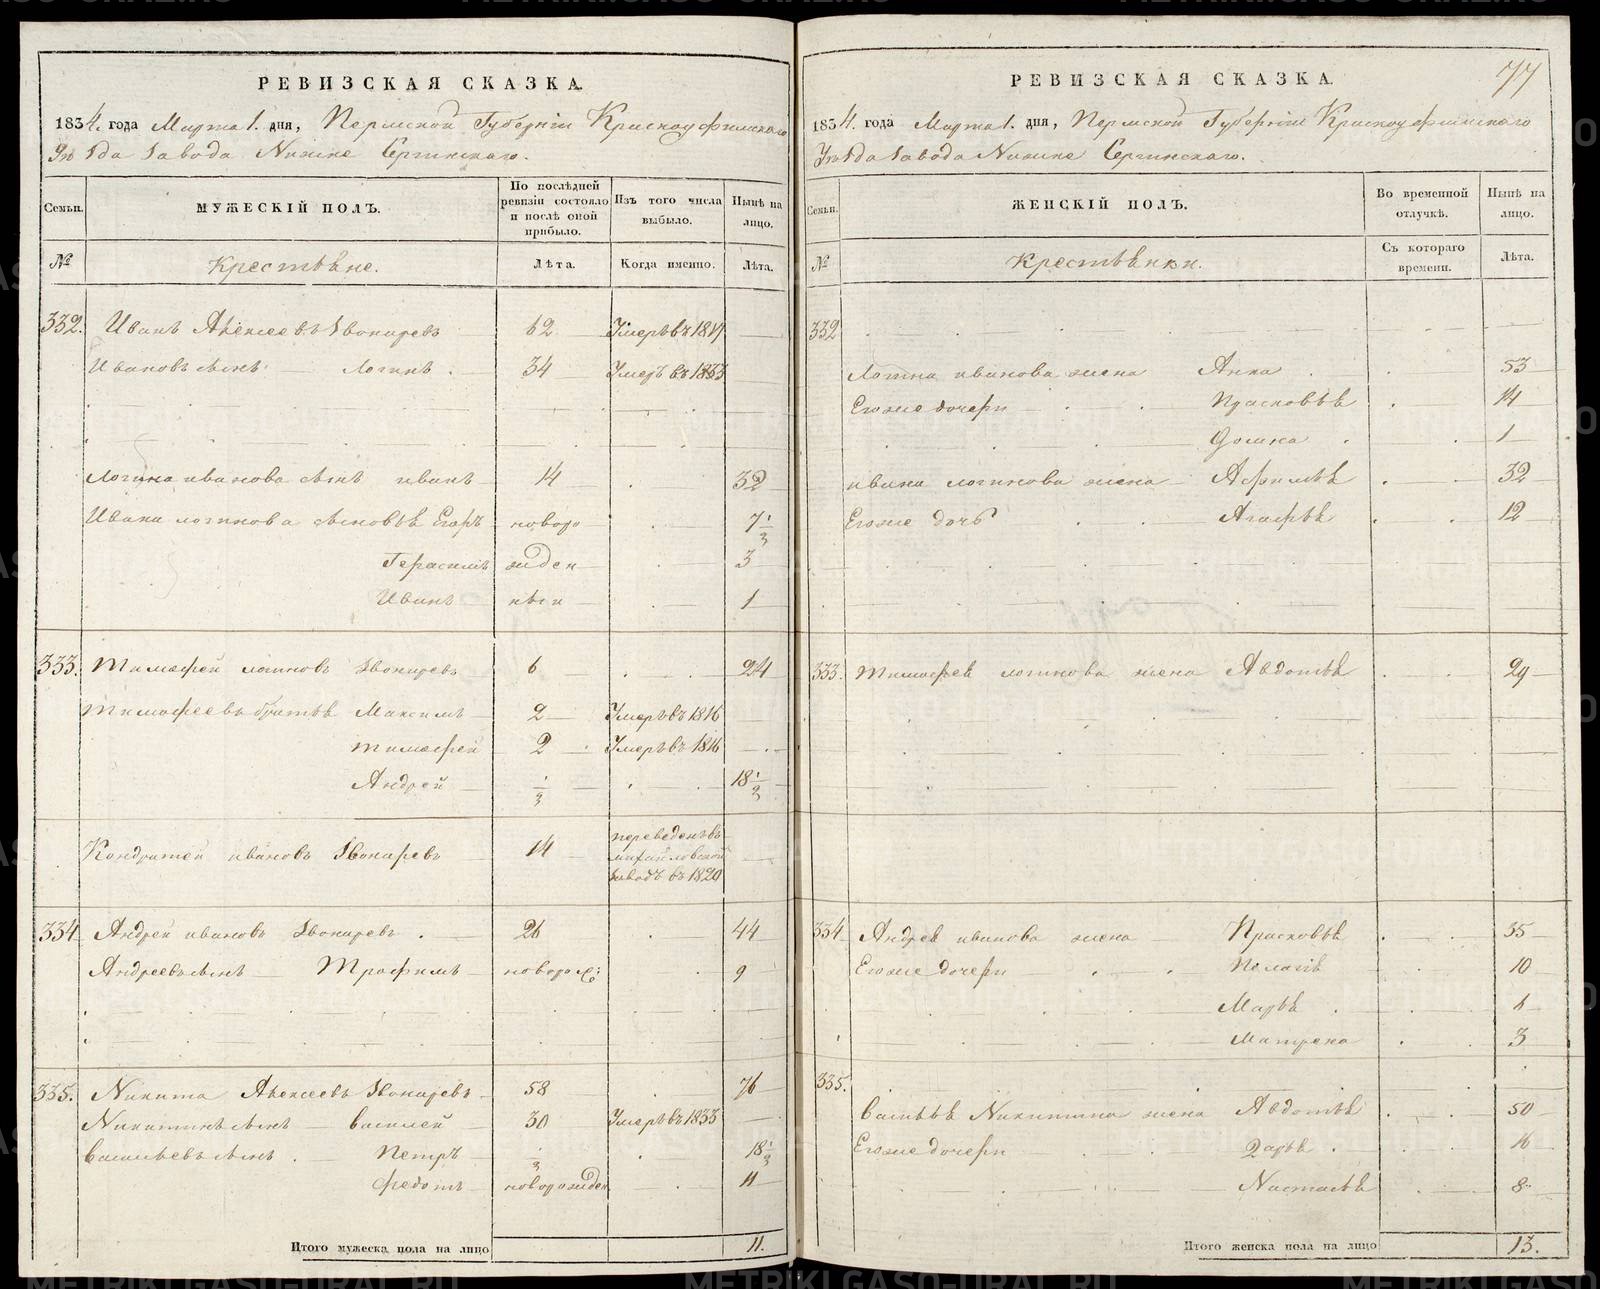 РЕВИЗСКАЯ СКАЗКА.
1834. года Марта 1. дня, Пермской Губерніи Красноуфимскаго
Уѣзда Завода Нижне Сергинскаго.
Семьи. МУЖЕСКІЙ ПОЛЪ. По послѣдней ревизіи состояло и послѣ оной прибыло. Изъ того числа выбыло. Нынѣ на лицо.
№ Крестьяне. Лѣта. Когда именно. Лѣта.
332. Иванъ Алексеевъ Звонаревъ 62 Умеръ въ 1817
Ивановъ сынъ Логинъ 34 Умеръ въ 1833
Логина иванова сынъ иванъ 14 32
Ивана логинова сыновья Егоръ новоро 7 1/3
Герасимъ жден 3
Иванъ ныи 1
333. Тимофей логиновъ Звонаревъ 6 24
Тимофеевъ братья Максимъ 2 Умеръ въ 1816
Тимофей 2 Умеръ въ 1816
Андрей 1/3 18 1/3
Кондратей ивановъ Звонаревъ 14 переведенъ въ
михайловской
заводъ въ 1820
334 Андрей ивановъ Звонаревъ 26 44
Андреевъ сынъ Трофимъ новорож: 9
335. Никита Алексеевъ Звонаревъ 58 76
Никитинъ сынъ василей 30 Умеръ въ 1833
Васильевъ сынъ Петръ 1/3 18 1/3
Федотъ новорожден 11
Итого мужеска пола на лицо 11.
77
РЕВИЗСКАЯ СКАЗКА.
1834. года Марта 1. дня, Пермской Губерніи Красноуфимскаго
Уѣзда Завода Нижне Сергинскаго.
Семьи. ЖЕНСКІЙ ПОЛЪ. Во временной отлучкѣ. Нынѣ на лицо.
№ Крестьянки. Съ котораго времени. Лѣта.
332
Логина иванова жена Анна 53
Егоже дочери Прасковья 14
Домна 1
ивана логинова жена Афимья 32
Егоже дочь Агафья 12
333. Тимофея логинова жена Авдотья 29
334. Андрея иванова жена Прасковья 35
Егоже дочери Пелагея 10
Марья 6
Матрена 3
335.
Василья Никитина жена Авдотья 50
Егоже дочери Дарья 16
Настасья 8
Итого женска пола на лицо 13.
METRIKI.GASO-URAL.RU